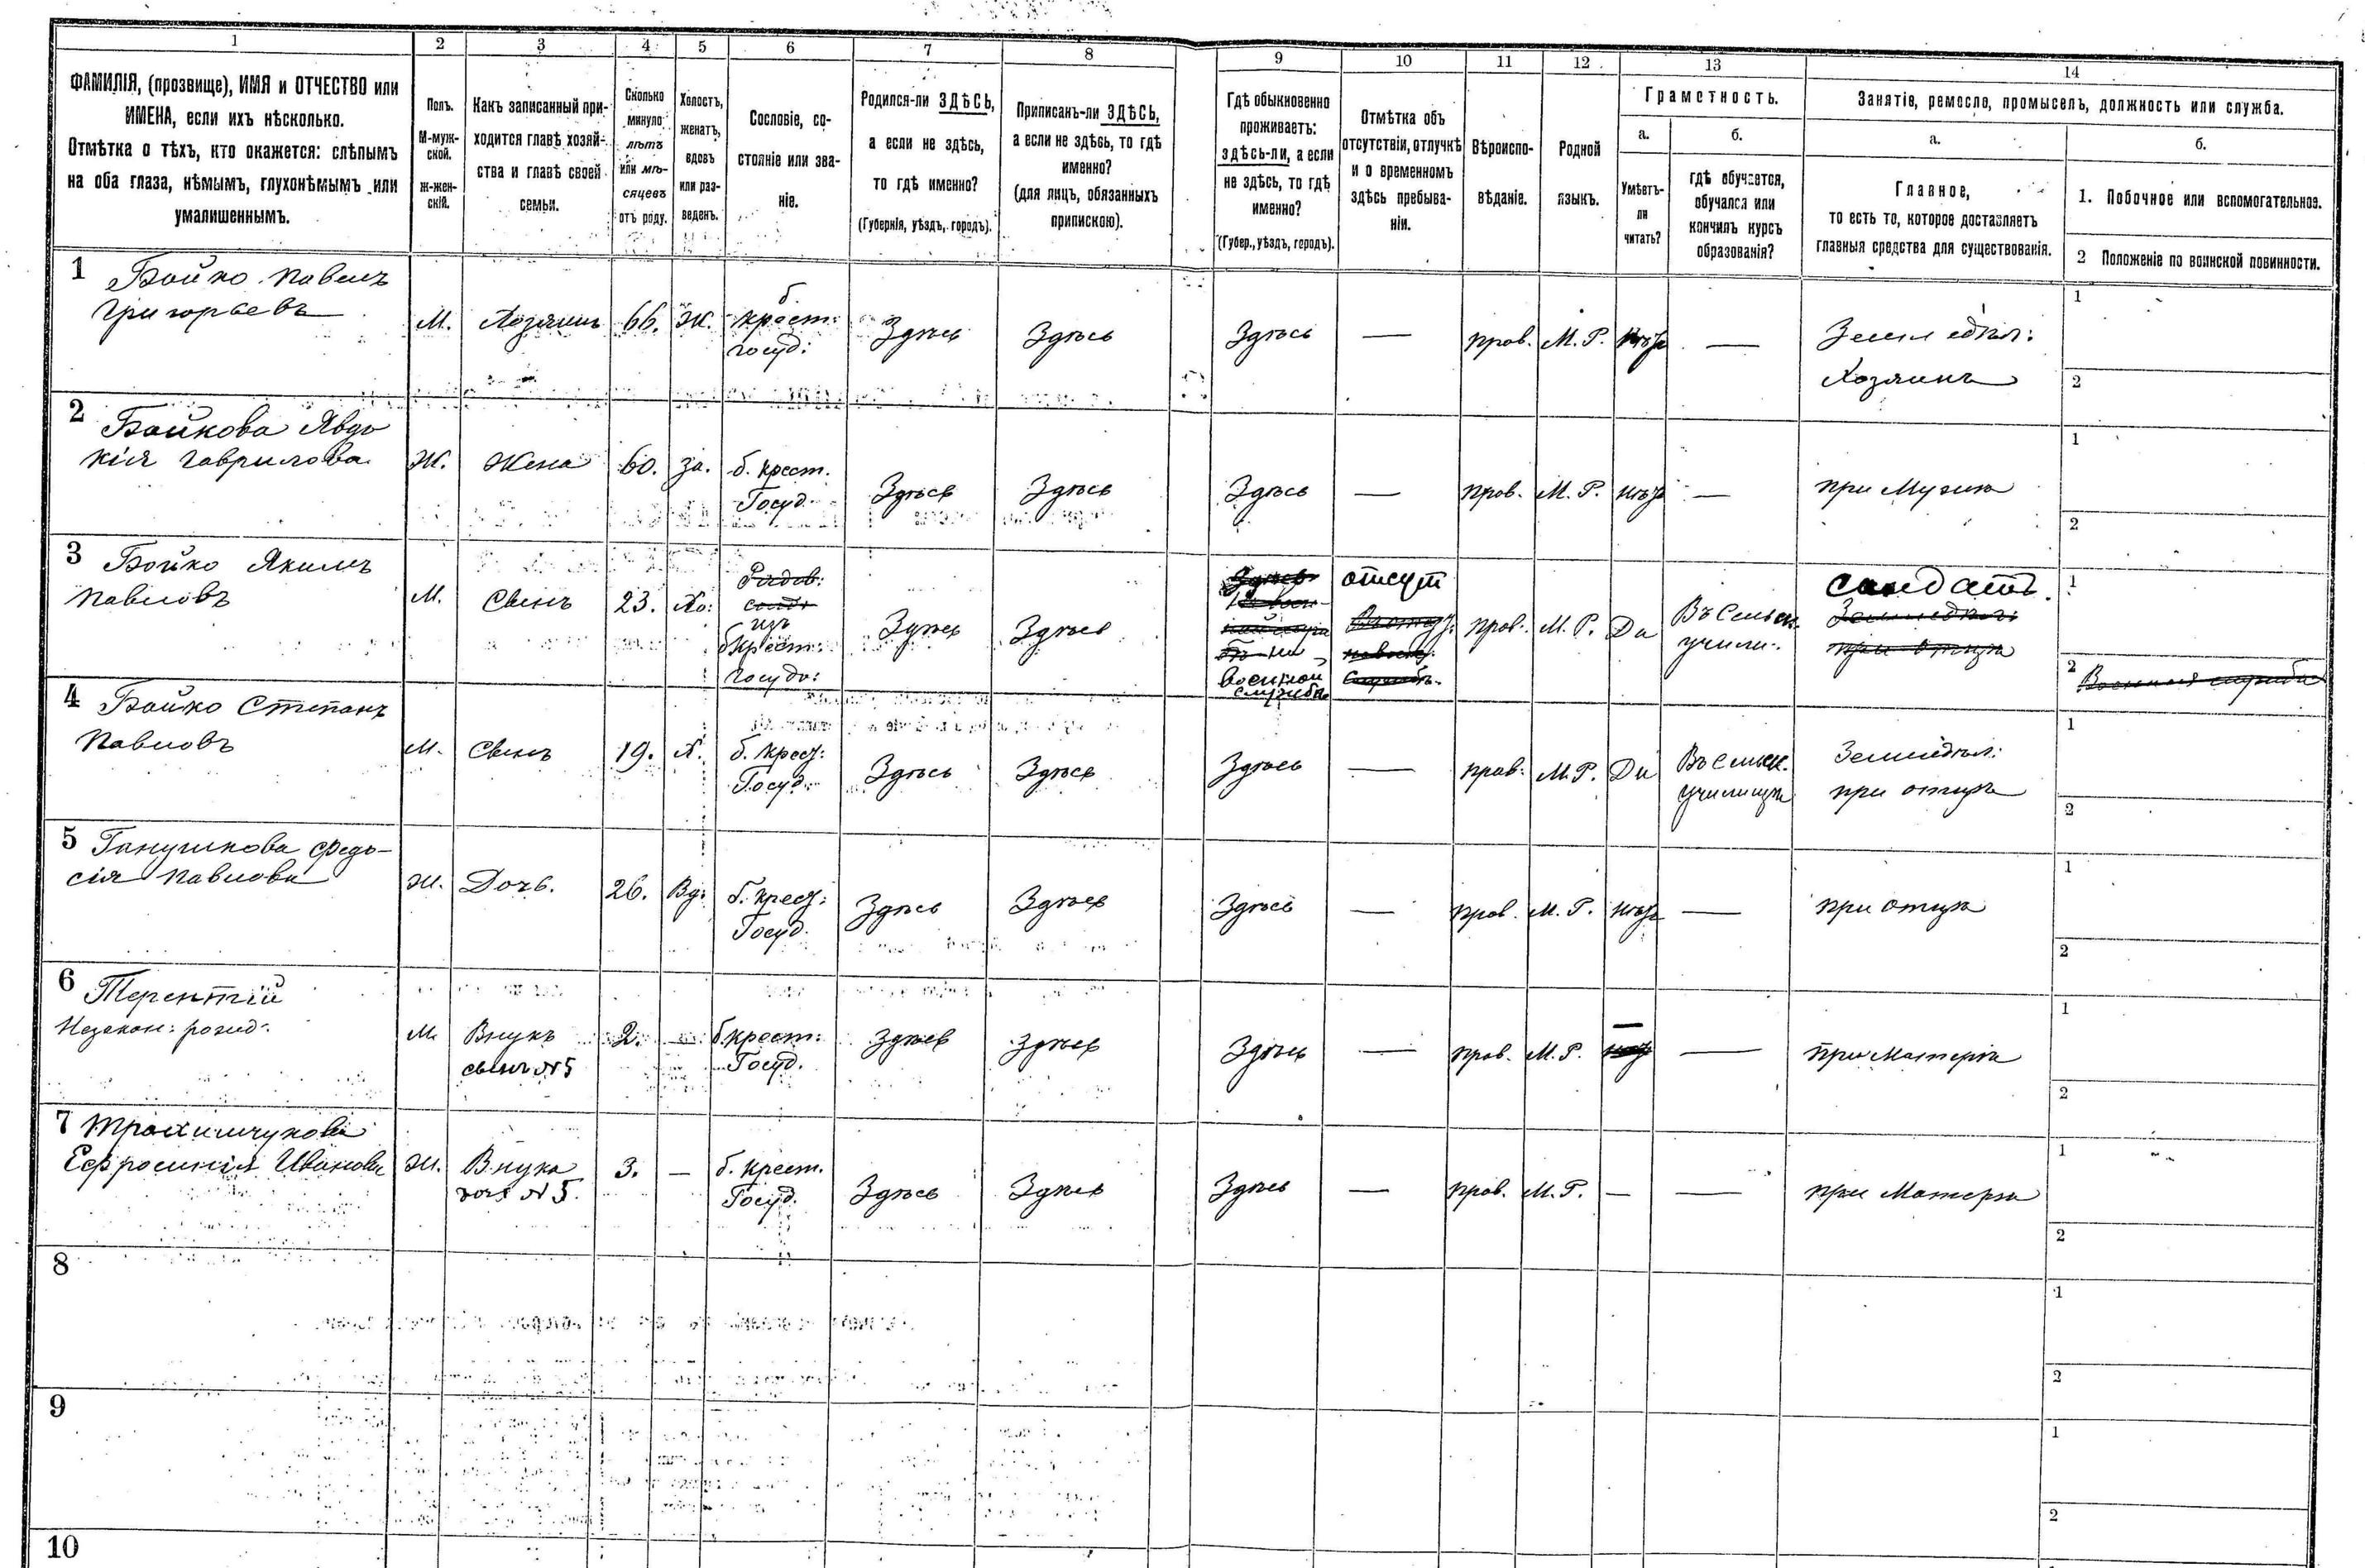 1 2 3 4 5 6 7 8 9 10 11 12 13 14
ФАМИЛІЯ, (прозвище), ИМЯ и ОТЧЕСТВО или
ИМЕНА, если ихъ нѣсколько.
Отмѣтка о тѣхъ, кто окажется: слѣпымъ
на оба глаза, нѣмымъ, глухонѣмымъ или
умалишеннымъ.
Полъ.
М-муж-
ской.
ж-жен-
скій.
Какъ записанный при-
ходится главѣ хозяй-
ства и главѣ своей
семьи.
Сколько
минуло
лѣтъ
или мѣ-
сяцевъ
отъ роду.
Холостъ,
женатъ,
вдовъ
или раз-
веденъ.
Сословіе, со-
стояніе или зва-
ніе.
Родился-ли ЗДѢСЬ,
а если не здѣсь,
то гдѣ именно?
(Губернія, уѣздъ, городъ).
Приписанъ-ли ЗДѢСЬ,
а если не здѣсь, то гдѣ
именно?
(для лицъ, обязанныхъ
припискою).
Гдѣ обыкновенно
проживаетъ:
здѣсь-ли, а если
не здѣсь, то гдѣ
именно?
(Губер., уѣздъ, городъ).
Отмѣтка объ
отсутствіи, отлучкѣ
и о временномъ
здѣсь пребыва-
ніи.
Вѣроиспо-
вѣданіе.
Родной
языкъ.
Грамотность.
а.
Умѣетъ-
ли
читать?
б.
гдѣ обучается,
обучался или
кончилъ курсъ
образованія?
Занятіе, ремесло, промыселъ, должность или служба.
а.
Главное,
то есть то, которое доставляетъ
главныя средства для существованія.
б.
1. Побочное или вспомогательное.
2 Положеніе по воинской повинности.
1 Бойко Павелъ
Григорьевъ
М. Хозяинъ 66. Ж.
б.
крест:
госуд:
Здѣсь Здѣсь Здѣсь — прав. М. Р. нѣтъ —
Землeдѣл:
Хозяинъ
1
2
2 Бойкова Явдо
кія Гаврилова
Ж. Жена 60. за.
б. крест.
Госуд.
Здѣсь Здѣсь Здѣсь — прав. М. Р. нѣтъ —
при Мужѣ
1
2
3 Бойко Якимъ
Павловъ
М. Сынъ 23. Хо:
Рядов:
изъ
б крест:
Госудо:
Здѣсь Здѣсь
Здѣсь
военной
службѣ
отсут
прав. М. Р. Да
Въ Сельск.
учили:
солдатъ.
Земледѣлъ
при отцѣ
1
2 Военная служба
4 Бойко Степанъ
Павловъ
М. Сынъ 19. Х.
б. крест:
Госуд.
Здѣсь Здѣсь Здѣсь — прав: М. Р. Да
Въ Сельск.
училищѣ
Земледѣл:
при отцѣ
1
2
5 Ганушкова Ѳедо-
сія Павлова
Ж. Дочь. 26. Вд:
б. крест:
Госуд.
Здѣсь Здѣсь Здѣсь — прав. М. Р. нѣтъ —
при отцѣ
1
2
6 Терентій
Незакон: рожд.
М
Внукъ
сынъ №5
2. —
б. крест:
Госуд.
Здѣсь Здѣсь Здѣсь — прав. М. Р. — —
при Матерѣ
1
2
7 Трохимчукова
Ефросинія Иванова
Ж.
Внука
дочь №5.
3. —
б. крест.
Госуд.
Здѣсь Здѣсь Здѣсь — прав. М. Р. — —
при Матерѣ
1
2
8
1
2
9
1
2
10